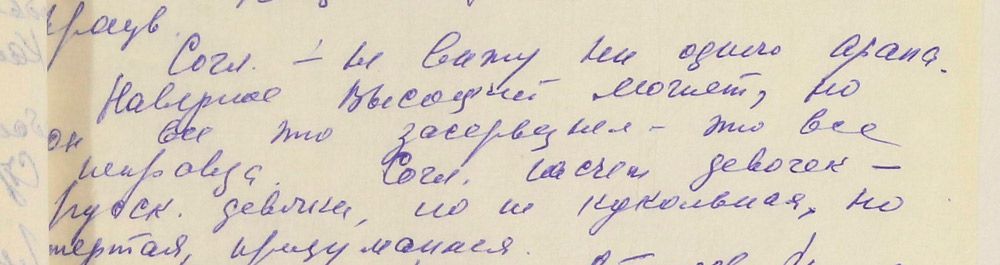 Согл. – не вижу ни одного арапа.
Наверное Высоцкий может, но
он все это – это все
неправда. Согл. насчет девочек –
русск. девочки, но не кукольная, но
мертвая, придуманная.